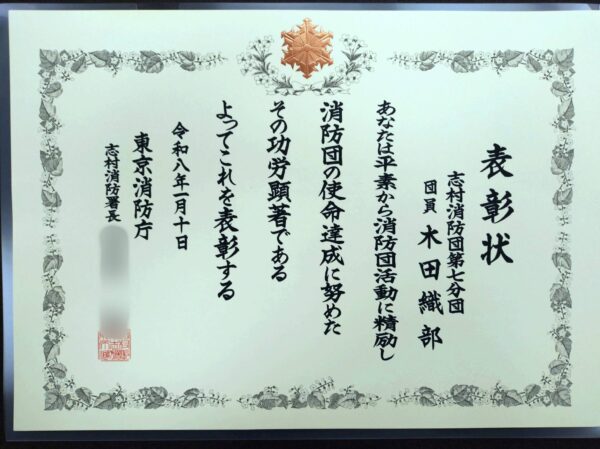 表彰状
志村消防団第七分団
団員 木田織部
あなたは平素から消防団活動に精励し
消防団の使命達成に努めた
その功労顕著である
よってこれを表彰する
令和八年一月十日
東京消防庁
志村消防署長